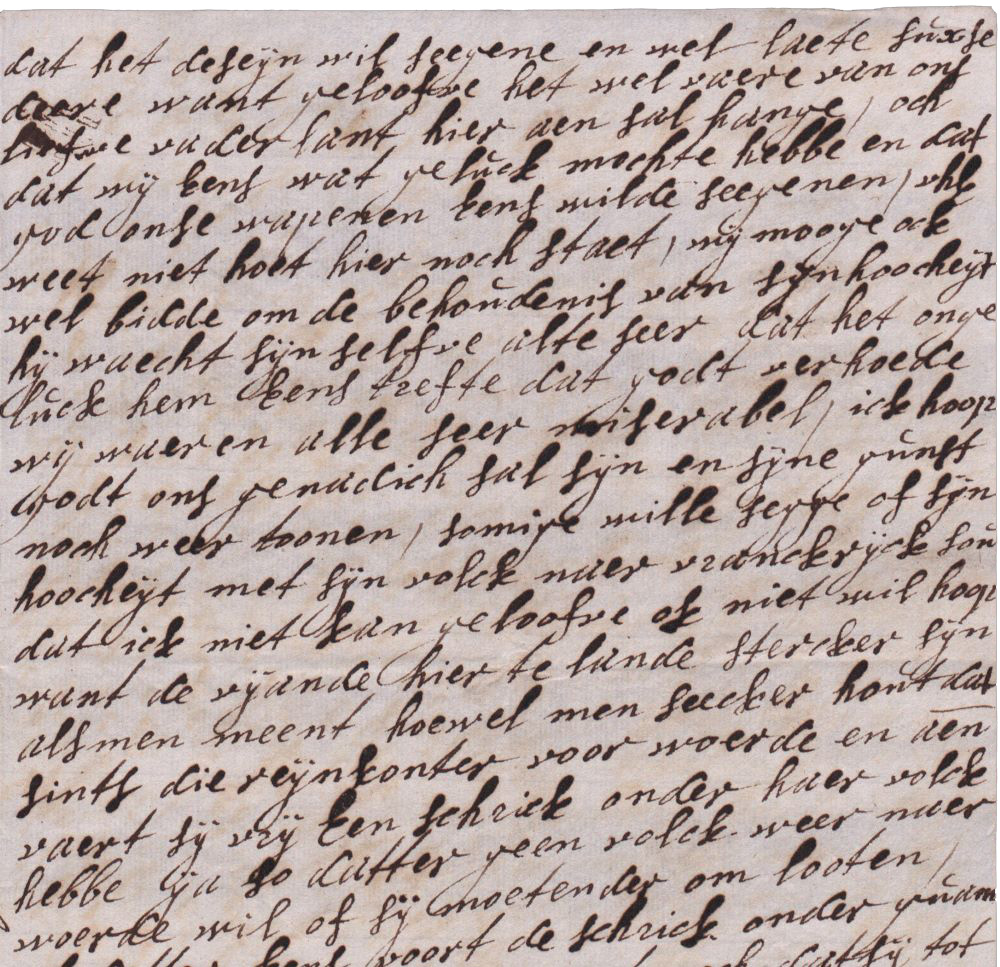 dat het deseijn wil seegene en wel laete suxse
deere want geloofve het wel vaere van ons
liefve vaderlant hier aen sal hange / och
dat wij eens wat geluck mochte hebbe en dat
god onse wapenen eens wilde seegenen / uhE
weet niet hoet hier noch staet / wij mooge ock
wel bidde om de behoudenis van sijn hoocheijt
hij waecht sijn selfve alte seer dat het onge
luck hem eens trefte dat godt verhoede
wij waeren alle seer miserabel / ick hoop
godt ons genadich sal sijn en sijne gunst
noch weer toonen / somige wille segge of sijn
hoocheijt met sijn volck naer vranckrijck sou
dat ick niet kan geloofve ok niet wil hoop
want de vijande hier te lande stercker sijn
als men meent hoewel men seecker hout dat
sints die reijnkonter voor woerde en aen
vaert sij vrij een schrick onder haer volck
hebbe ija so datter geen volck weer naer
woerde wil of sij moetender om looten /
eens voort de schrick onder quam
datsij tot